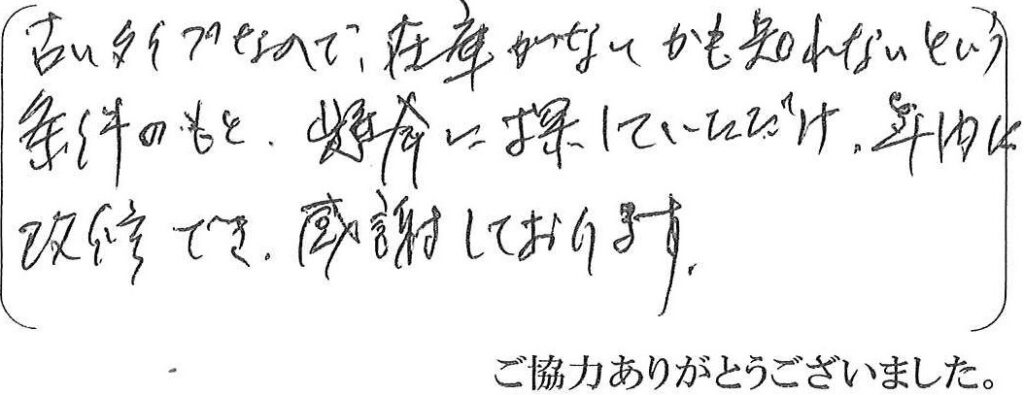 古いタイプなので、在庫がないかも知れないという
条件のもと、懸命にお探していただけ、年内に
改修でき、感謝しております。
ご協力ありがとうございました。